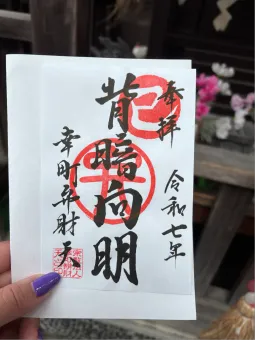 奉拝
令和七年
巳
背暗向明
幸町弁財天